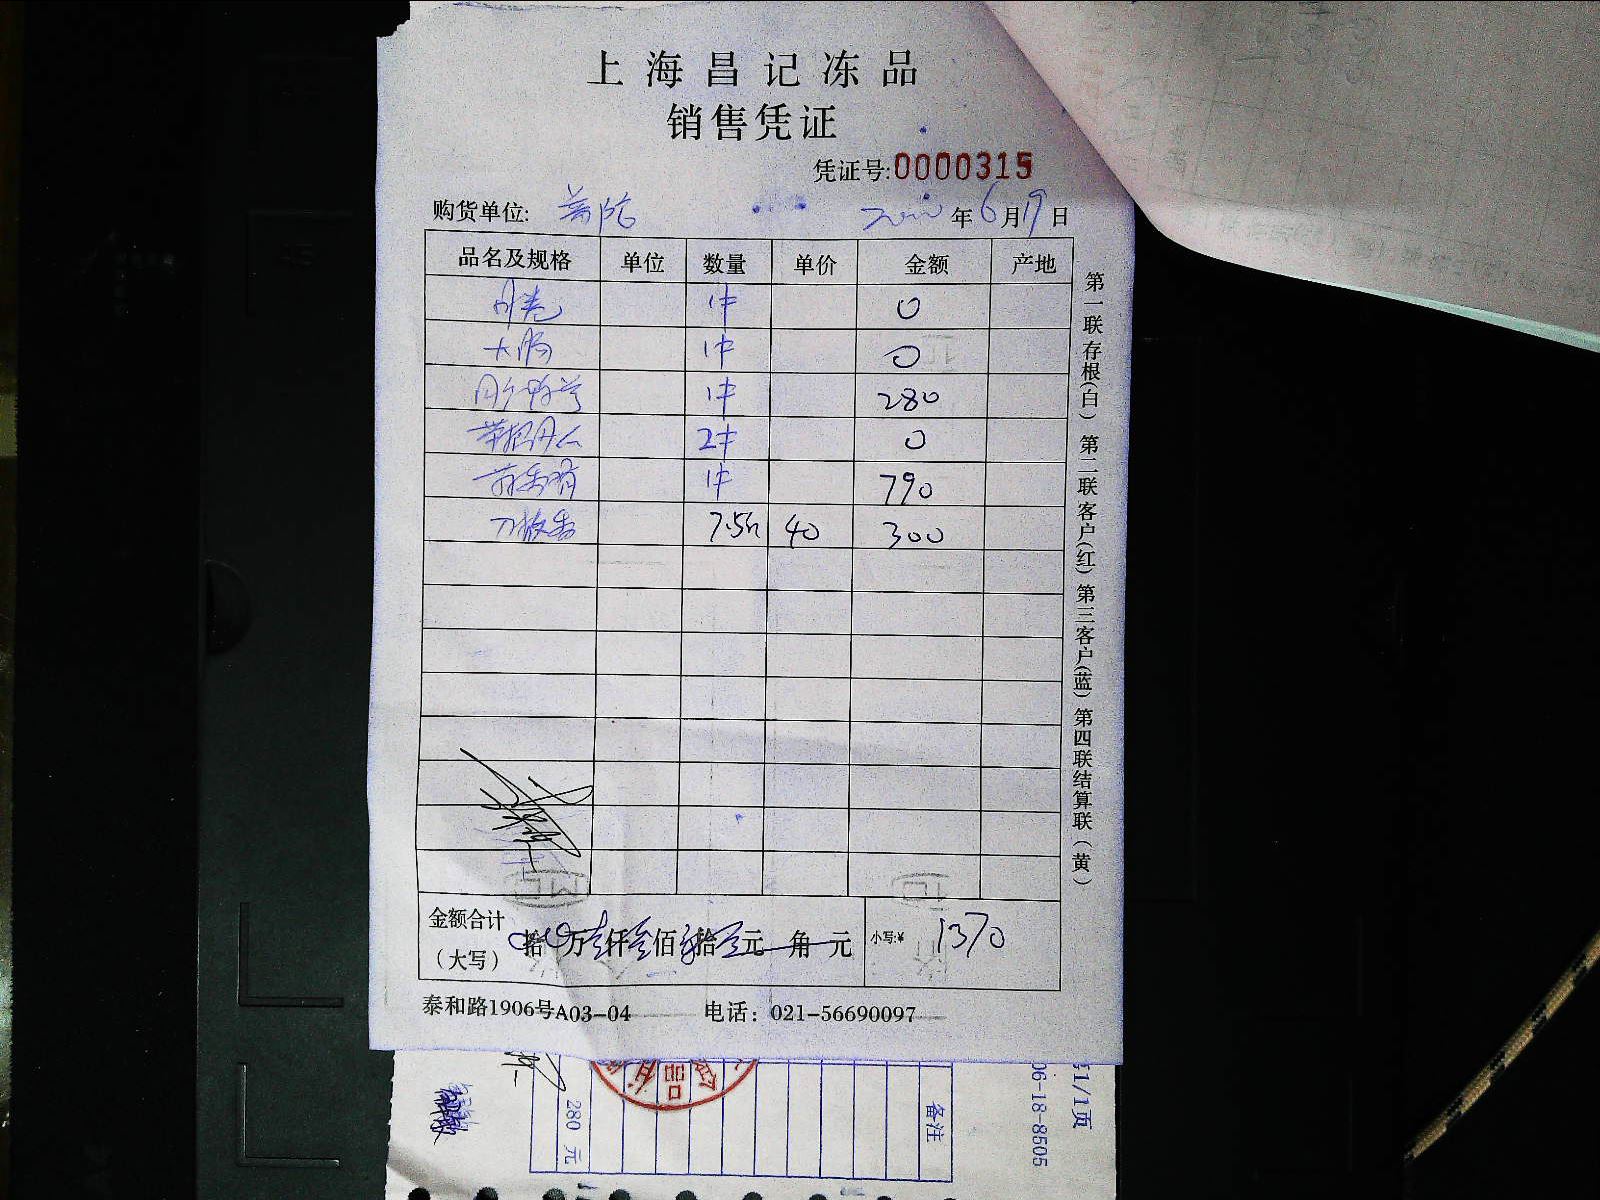 上海昌记冻品
销售凭证
凭证号:0000315
购货单位: 年6月19日
品名及规格 单位 数量 单价 金额 产地
1件 0
大肠 1件 0
1件 280
2件 0
1件 790
7.5 40 300
金额合计(大写) 拾 万壹仟叁佰 拾 元 角 元 小写:¥ 1370
泰和路1906号A03-04 电话：021-56690097
第一联存根(白) 第二联客户(红) 第三客户(蓝) 第四联结算联(黄)
280 元
备注
06-18-8505
1/1页